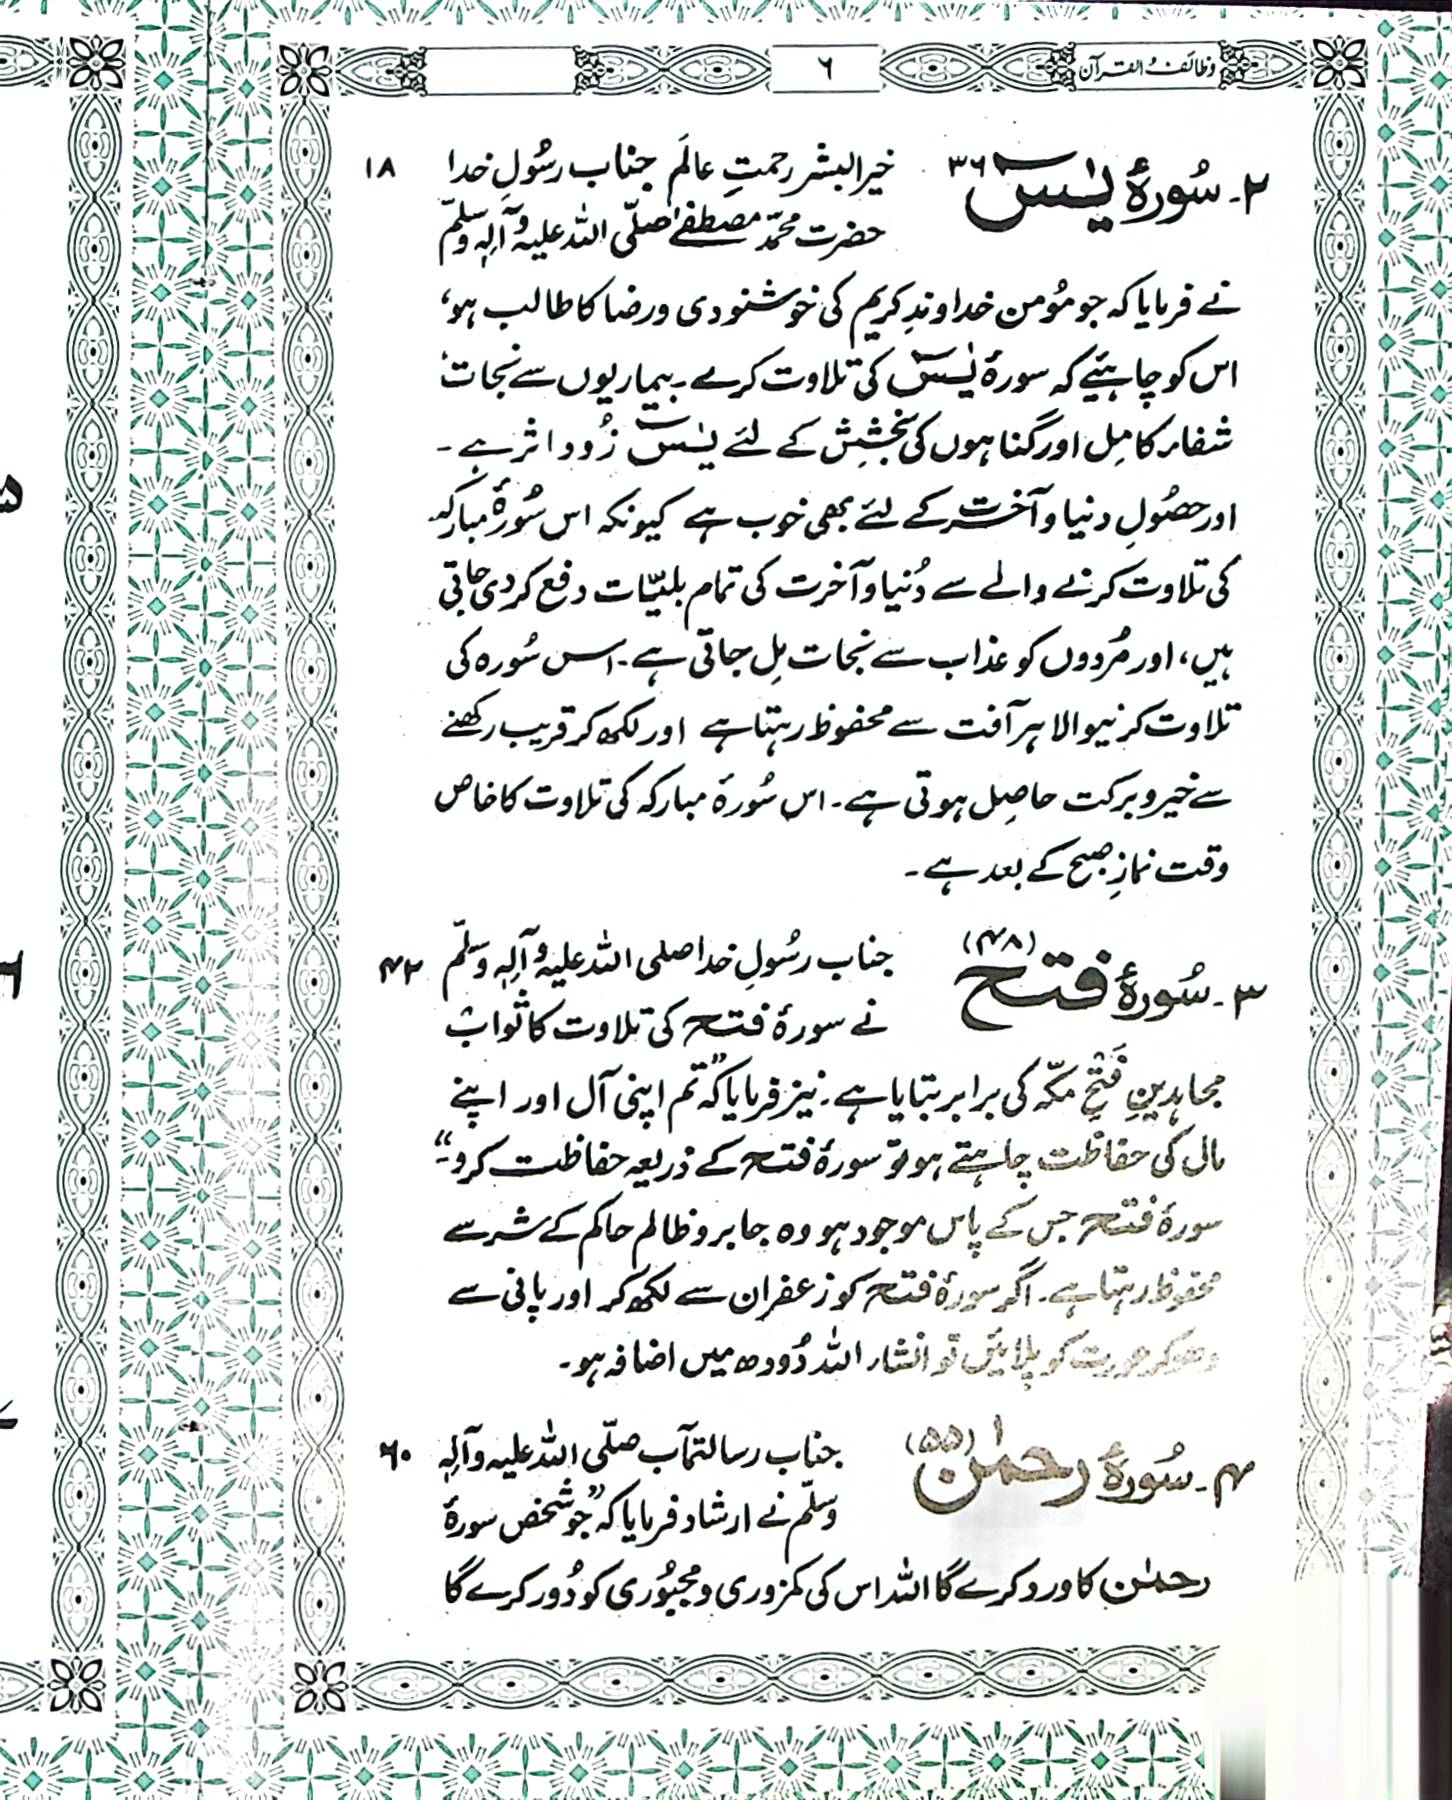 وظائف القرآن
۶
۲۔ سُورۂ یٰسٓ ۳۶ خیر البشر رحمتِ عالَم جناب رسُولِ خدا ۱۸
حضرت محمّد مصطفےٰ صلّی اللہ علیہ وآلہٖ وسلّم
نے فرمایا کہ جو مُومن خداوندِ کریم کی خوشنودی و رضا کا طالب ہو،
اس کو چاہئیے کہ سورۂ یٰسٓ کی تلاوت کرے۔ بیماریوں سے نجات،
شفاء کامِل اور گناہوں کی بخشِش کے لئے یٰسٓ زُود اثر ہے۔
اور حصُولِ دنیا و آخرت کے لئے بھی خوب ہے کیونکہ اس سُورۂ مبارکہ
کی تلاوت کرنے والے سے دُنیا و آخرت کی تمام بلیّات دفع کر دی جاتی
ہیں، اور مُردوں کو عذاب سے نجات مِل جاتی ہے۔ اس سُورہ کی
تلاوت کرنیوالا ہر آفت سے محفوظ رہتا ہے اور لکھ کر قریب رکھنے
سے خیر و برکت حاصِل ہوتی ہے۔ اس سُورۂ مبارکہ کی تلاوت کا خاص
وقت نمازِ صبح کے بعد ہے۔
۳۔ سُورۂ فتح (۴۸) جناب رسُولِ خدا صلی اللہ علیہ وآلہٖ وسلّم ۴۲
نے سورۂ فتح کی تلاوت کا ثواب
مجاہدینِ فَتْحِ مکّہ کی برابر بتایا ہے۔ نیز فرمایا کہ ”تم اپنی آل اور اپنے
مال کی حفاظت چاہتے ہو تو سورۂ فتح کے ذریعہ حفاظت کرو۔“
سورۂ فتح جس کے پاس موجود ہو وہ جابر و ظالم حاکم کے شر سے
محفوظ رہتا ہے۔ اگر سورۂ فتح کو زعفران سے لکھ کر اور پانی سے
دھو کر عورت کو پلائیں تو انشاء اللہ دُودھ میں اضافہ ہو۔
۴۔ سُورۂ رحمٰن (۵۵) جناب رسالتمآب صلّی اللہ علیہ وآلہٖ ۶۰
وسلّم نے ارشاد فرمایا کہ ”جو شخص سورۂ
رحمٰن کا ورد کرے گا اللہ اس کی کمزوری و مجبُوری کو دُور کرے گا